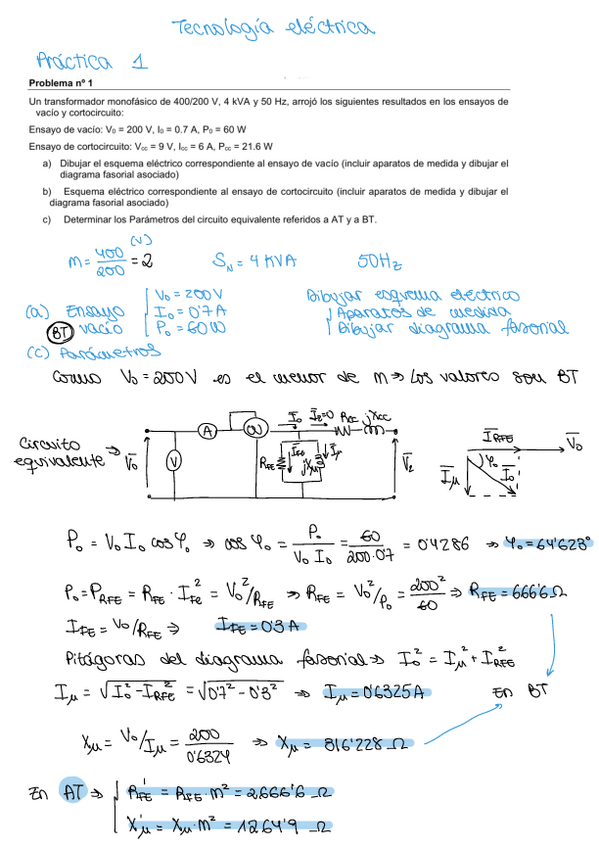 Tecnología eléctrica
Práctica 1
Problema nº 1
Un transformador monofásico de 400/200 V, 4 kVA y 50 Hz, arrojó los siguientes resultados en los ensayos de
vacío y cortocircuito:
Ensayo de vacío: V₀ = 200 V, I₀ = 0.7 A, P₀ = 60 W
Ensayo de cortocircuito: Vcc = 9 V, Icc = 6 A, Pcc = 21.6 W
a) Dibujar el esquema eléctrico correspondiente al ensayo de vacío (incluir aparatos de medida y dibujar el
diagrama fasorial asociado)
b) Esquema eléctrico correspondiente al ensayo de cortocircuito (incluir aparatos de medida y dibujar el
diagrama fasorial asociado)
c) Determinar los Parámetros del circuito equivalente referidos a AT y a BT.
m = 400/200 = 2 (V) S_N = 4 KVA 50Hz
(a) Ensayo vacío BT { V₀ = 200V I₀ = 0'7 A P₀ = 60W
Dibujar esquema eléctrico
Aparatos de medida
Dibujar diagrama fasorial
(c) Parámetros
Como V₀ = 200V es el menor de m → los valores son BT
Circuito equivalente → V̅₀ A W V I̅₀ I̅₂=0 Rcc jXcc R_FE I̅_FE jXμ I̅μ V̅₂
I̅_RFE V̅₀ φ₀ I̅μ I̅₀
P₀ = V₀ I₀ cos φ₀ → cos φ₀ = P₀/(V₀ I₀) = 60/(200·0'7) = 0'4286 → φ₀ = 64'623°
P₀ = P_RFE = R_FE · I_Fe² = V₀²/R_FE → R_FE = V₀²/P₀ = 200²/60 → R_FE = 666'6 Ω
I_FE = V₀/R_FE → I_FE = 0'3 A
Pitágoras del diagrama fasorial → I₀² = Iμ² + I_RFE²
Iμ = √(I₀² - I_RFE²) = √(0'7² - 0'3²) → Iμ = 0'6325 A En BT
Xμ = V₀/Iμ = 200/0'6324 → Xμ = 316'228 Ω
En AT → { R'_FE = R_FE · m² = 2.666'6 Ω
X'μ = Xμ · m² = 1264'9 Ω